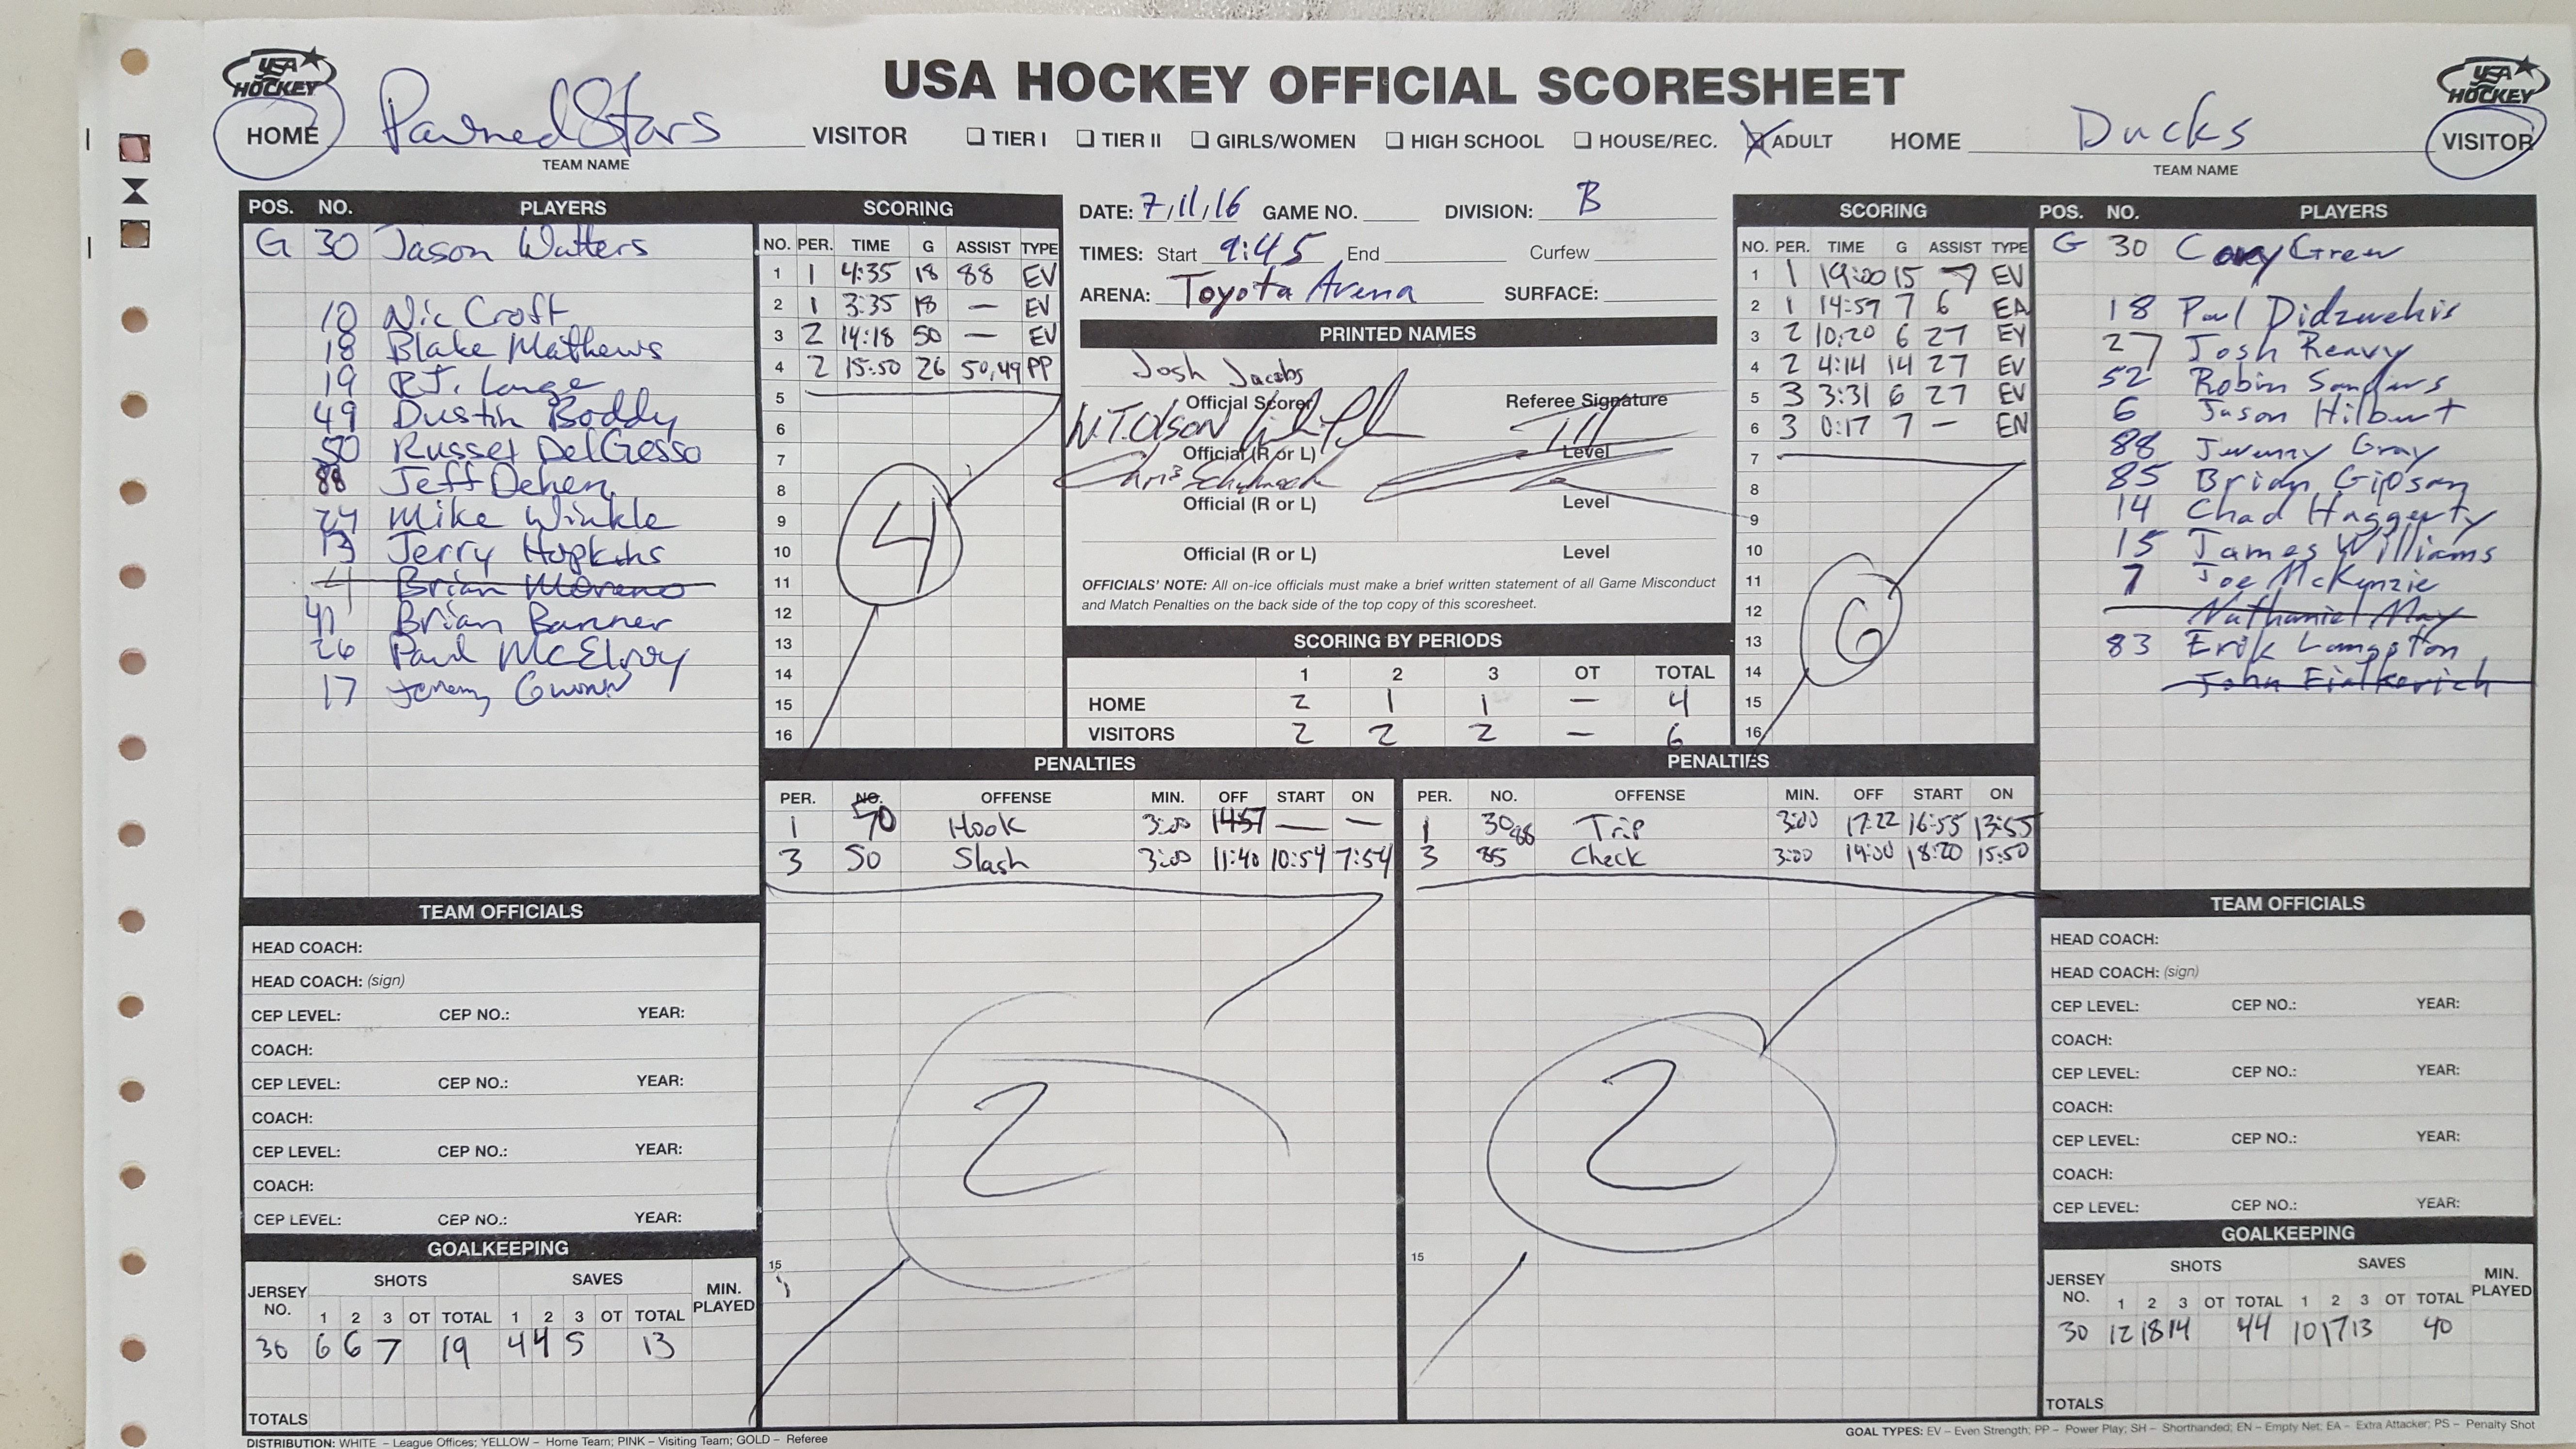 USA HOCKEY OFFICIAL SCORESHEET
USA HOCKEY
USA HOCKEY
HOME PawnedStars VISITOR
TEAM NAME
TIER I TIER II GIRLS/WOMEN HIGH SCHOOL HOUSE/REC. ADULT
HOME Ducks VISITOR
TEAM NAME
POS. NO. PLAYERS
G 30 Jason Watters
10 Nic Croft
18 Blake Mathews
19 R.J. Lange
49 Dustin Boddy
50 Russel DelGesso
88 Jeff Dehen
Mike Winkle
13 Jerry Hopkins
4 Brian Moreno
41 Brian Banner
26 Paul McElroy
17 Jeremy Gwinn
SCORING
NO. PER. TIME G ASSIST TYPE
1 1 4:35 18 88 EV
2 1 3:35 18 — EV
3 2 14:18 50 — EV
4 2 15:50 26 50,49 PP
5
6
7
8
9
10
11
12
13
14
15
16
4
DATE: 7/11/16 GAME NO. DIVISION: B
TIMES: Start 9:45 End Curfew
ARENA: Toyota Arena SURFACE:
PRINTED NAMES
Josh Jacobs
Official Scorer Referee Signature
W.T. Olson
Official (R or L) Level
Chris
Official (R or L) Level
Official (R or L) Level
OFFICIALS' NOTE: All on-ice officials must make a brief written statement of all Game Misconduct
and Match Penalties on the back side of the top copy of this scoresheet.
SCORING BY PERIODS
1 2 3 OT TOTAL
HOME 2 1 1 — 4
VISITORS 2 2 2 — 6
SCORING
NO. PER. TIME G ASSIST TYPE
1 1 19:00 15 7 EV
2 1 14:57 7 6 EA
3 2 10:20 6 27 EV
4 2 4:14 14 27 EV
5 3 3:31 6 27 EV
6 3 0:17 7 — EN
7
8
9
10
11
12
13
14
15
16
6
POS. NO. PLAYERS
G 30 Corey Grew
18 Paul Didzuwehis
27 Josh Reavy
52 Robin Sanders
6 Jason Hilburt
88 Jeremy Gray
85 Brian Gipson
14 Chad Haggerty
15 James Williams
7 Joe McKenzie
Nathaniel May
83 Erik Langston
John Fialkovich
PENALTIES
PER. NO. OFFENSE MIN. OFF START ON
1 50 Hook 3:00 14:57 — —
3 50 Slash 3:00 11:40 10:54 7:54
15
2
PENALTIES
PER. NO. OFFENSE MIN. OFF START ON
1 30 88 Trip 3:00 17:22 16:55 13:55
3 85 Check 3:00 19:00 18:20 15:50
15
2
TEAM OFFICIALS
HEAD COACH:
HEAD COACH: (sign)
CEP LEVEL: CEP NO.: YEAR:
COACH:
CEP LEVEL: CEP NO.: YEAR:
COACH:
CEP LEVEL: CEP NO.: YEAR:
COACH:
CEP LEVEL: CEP NO.: YEAR:
GOALKEEPING
JERSEY NO. SHOTS SAVES MIN. PLAYED
1 2 3 OT TOTAL 1 2 3 OT TOTAL
30 6 6 7 19 4 4 5 13
TOTALS
TEAM OFFICIALS
HEAD COACH:
HEAD COACH: (sign)
CEP LEVEL: CEP NO.: YEAR:
COACH:
CEP LEVEL: CEP NO.: YEAR:
COACH:
CEP LEVEL: CEP NO.: YEAR:
COACH:
CEP LEVEL: CEP NO.: YEAR:
GOALKEEPING
JERSEY NO. SHOTS SAVES MIN. PLAYED
1 2 3 OT TOTAL 1 2 3 OT TOTAL
30 12 18 14 44 10 17 13 40
TOTALS
DISTRIBUTION: WHITE – League Offices; YELLOW – Home Team; PINK – Visiting Team; GOLD – Referee
GOAL TYPES: EV – Even Strength; PP – Power Play; SH – Shorthanded; EN – Empty Net; EA – Extra Attacker; PS – Penalty Shot